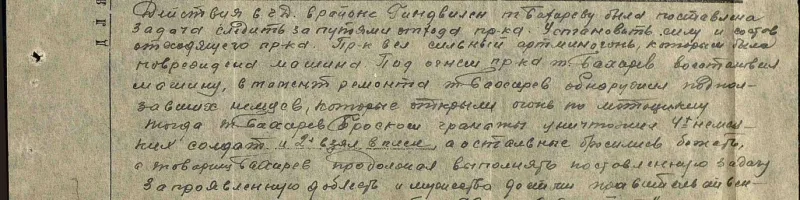 Действия в г.Д. в районе Гиндвилен т Вахареву была поставлена
задача следить за путями отхода пр-ка. Установить силу и состав
отходящего пр-ка. Пр-к вел сильный артминогонь, которым была
повреждена машина Под огнем пр-ка т Вахарев восстановил
машину, в момент ремонта т Вахарев обнаружил подпол-
завших немцев, которые открыли огонь по мотоциклу
тогда т Вахарев броском гранаты уничтожил 4х немец-
ких солдат и 2х взял в плен, а остальные бросились бежать,
а товарищ Вахарев продолжал выполнять поставленную задачу
За проявленную доблесть и мужество достоин